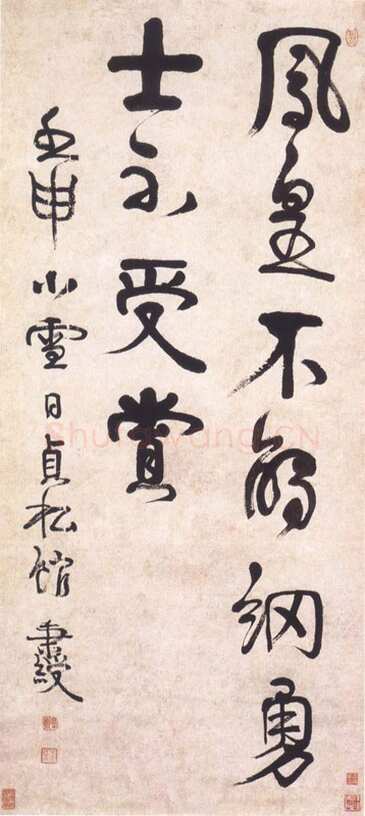 鳳皇不網勇
士不受賞
壬申小雪日貞松館
ShufaWang.CN